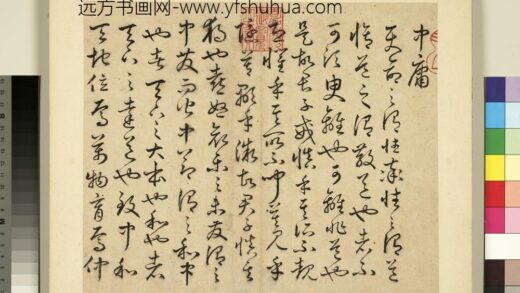 远方书画网-www.yfshuhua.com
中庸
天命之谓性率性之谓道
修道之谓教道也者不
可须臾离也可离非道也
是故君子戒慎乎其所不睹
恐惧乎其所不闻莫见乎
隐莫显乎微故君子慎其
独也喜怒哀乐之未发谓之
中发而皆中节谓之和中
也者天下之大本也和也者
天下之达道也致中和
天地位焉万物育焉仲